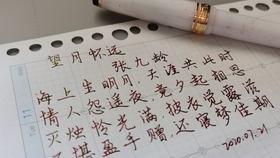 望月怀远
张九龄
海上生明月,天涯共此时
情人怨遥夜,竟夕起相思
灭烛怜光满,披衣觉露滋
不堪盈手赠,还寝梦佳期
11